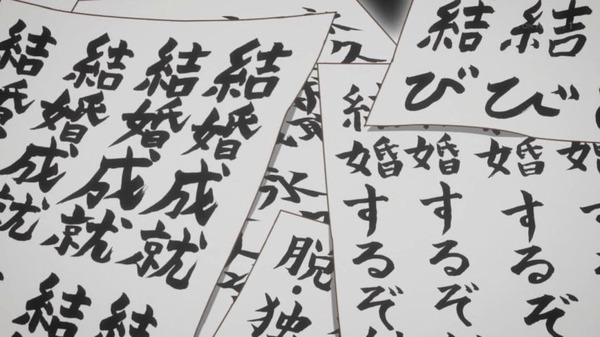 結び
結び
婚するぞ
婚するぞ
結婚するぞ
脱・独
結婚成就
結婚成就結
結婚成就結
結婚